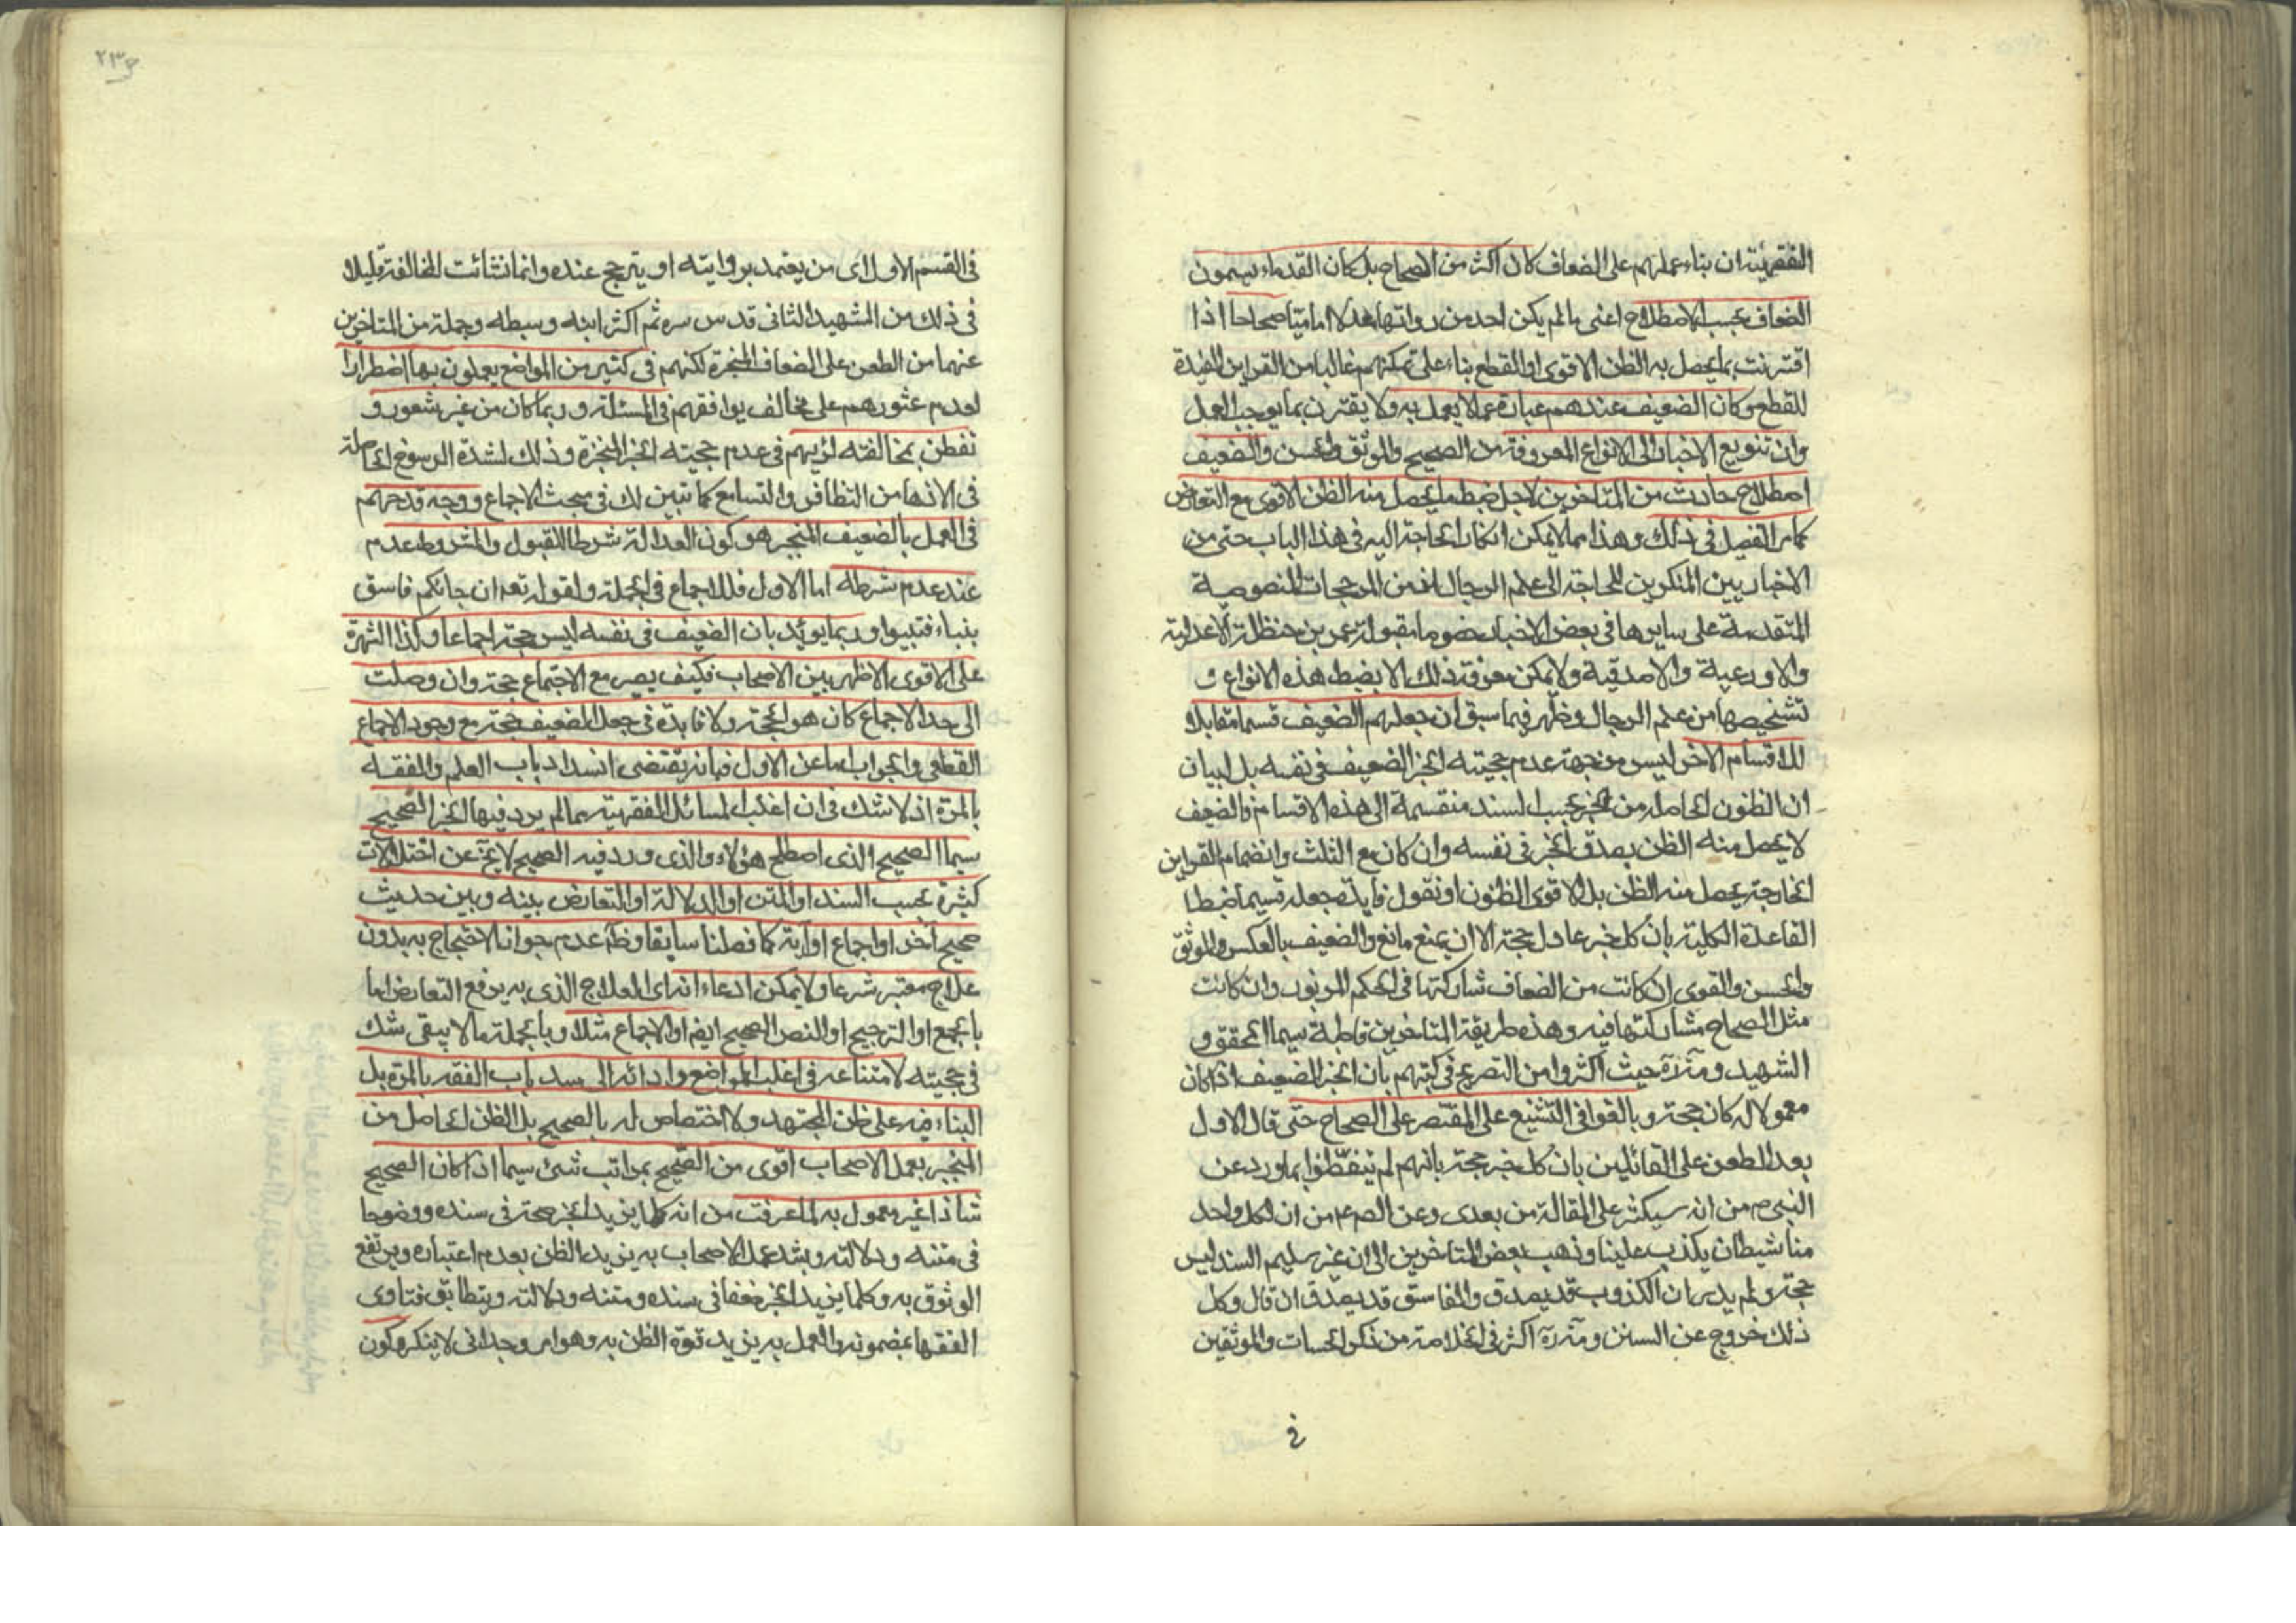 الفقهية ان بناء عملهم على الضعاف كان اكثر من الصحاح بل كان القدماء يسمون
الضعاف بحسب الاصطلاح اعنى ما لم يكن احد من رواتها عدلا اماميّا صحاحا اذا
اقترنت بما يحصل به الظن الاقوى او القطع بناء على تمكنهم غالبا من القراين المفيدة
للقطع وكان الضعيف عندهم عبارة عما لا يعمل به ولا يقترن بما يوجب العمل
وان تنويع الاخبار الى الانواع المعروفة من الصحيح والموثق والحسن والضعيف
اصطلاح حادث من المتاخرين لاجل ضبط ما يحصل منه الظن الاقوى مع التعارض
كما مر التفصيل فى ذلك وهذا مما لا يمكن انكار الحاجة اليه فى هذا الباب حتى من
الاخباريين المنكرين للحاجة الى علم الرجال لانه من المرجحات المنصوصة
المتقدمة على سايرها فى بعض الاخبار خصوصا مقبولة عمر بن حنظلة الاعدلية
والاورعية والاصدقية ولا يمكن معرفة ذلك الا بضبط هذه الانواع و
تشخيصها من علم الرجال وظهر فيما سبق ان جعلهم الضعيف قسما مقابلا
للاقسام الاخر ليس من جهة عدم حجيته الخبر الضعيف فى نفسه بل لبيان
ان الظنون الحاصلة من الخبر بحسب السند منقسمة الى هذه الاقسام والضعيف
لا يحصل منه الظن بصدق الخبر فى نفسه وان كان مع الثلث وانضمام القراين
الخارجة يحصل منه الظن بل الاقوى الظنون او نقول فايدة جعله قسيما ضبط
القاعدة الكلية بان كل خبر عادل حجة الا ان يمنع مانع والضعيف بالعكس والموثق
والحسن والقوى ان كانت من الضعاف شاركتها فى الحكم المزبور وان كانت
مثل الصحاح شاركتها فيه وهذه طريقة المتاخرين قاطبة سيما المحقق و
الشهيد ومن تاخر حيث اكثروا من التصريح فى كتبهم بان الخبر الضعيف اذا كان
معمولا به كان حجة وبالغوا فى التشنيع على المقتصر على الصحاح حتى قال الاول
بعد الطعن على القائلين بان كل خبر حجة بانهم لم يتفطنوا بما ورد عن
النبى ص من انه سيكثر على المقالة من بعدى وعن الص ع من ان لكل واحد
منا شيطان يكذب علينا وذهب بعض المتاخرين الى ان غير سليم السند ليس
حجة ولم يدر ان الكذوب قد يصدق والفاسق قد يصدق ان قال وكل
ذلك خروج عن السنن ومن تاخر اكثر فى الخلاصة من ذكر الحسان والموثقين
فى
٢٣٤
فى القسم الاول اى من يعتمد بروايته او يترجح عنده وانما نشائت المخالفة قليلا
فى ذلك من الشهيد الثانى قدس سره ثم اكثر ابنه وسبطه وجملة من المتاخرين
عنهما من الطعن على الضعاف المنجبرة لكنهم فى كثير من المواضع يعملون بها اضطرارا
لعدم عثورهم على مخالف يوافقهم فى المسئلة وربما كان من غير شعور و
تفطن بمخالفته لرأيهم فى عدم حجيته الخبر المنجبرة وذلك لشدة الرسوخ الحاصلة
فى الاذهان من التظافر والتسامع كما تبين لك فى مبحث الاجماع ووجه قدحهم
فى العمل بالضعيف المنجبر هو كون العدالة شرطا للقبول والمشروط عدم
عند عدم شرطه اما الاول فللاجماع فى الجملة ولقوله تع ان جائكم فاسق
بنباء فتبينوا وربما يؤيد بان الضعيف فى نفسه ليس حجة اجماعا وكذا الشهرة
على الاقوى الاظهر بين الاصحاب فكيف يصير مع الاجتماع حجة وان وصلت
الى حد الاجماع كان هو الحجة ولا فايدة فى جعل الضعيف حجة مع وجود الاجماع
القطعى والجواب اما عن الاول فبانه يقتضى انسداد باب العلم والفقه
بالمرة اذ لا شك فى ان اغلب المسائل الفقهية مما لم يرد فيها الخبر الصحيح
سيما الصحيح الذى اصطلح هؤلاء والذى ورد فيه الصحيح لا يخ عن اختلالات
كثيرة بحسب السند او المتن او الدلالة او التعارض بينه وبين حديث
صحيح آخر او اجماع او آية كما فصلنا سابقا وظهر عدم جواز الاحتجاج به بدون
علاج معتبر شرعا ولا يمكن ادعاء انه اى العلاج الذى به يرفع التعارض اما
بالجمع او الترجيح او النص الصحيح ايضا او الاجماع مثلا وبالجملة ما لا يبقى شك
فى حجيته لامتناعه فى اغلب المواضع وادائه الى سد باب الفقه بالمرة بل
البناء فيه على ظن المجتهد ولا اختصاص له بالصحيح بل الظن الحاصل من
المنجبر بعمل الاصحاب اقوى من الصحيح بمراتب شتى سيما اذا كان الصحيح
شاذا غير معمول به لما عرفت من انه كلما يزيد الخبر صحة فى سنده ووضوحا
فى متنه ودلالته ويشد عمل الاصحاب به يزيد الظن بعدم اعتباره ويرتفع
الوثوق به وكلما يزيد الخبر ضعفا فى سنده ومتنه ودلالته ويتطابق فتاوى
الفقهاء بمضمونه والعمل به يزيد قوة الظن به وهو امر وجدانى لا ينكره كون